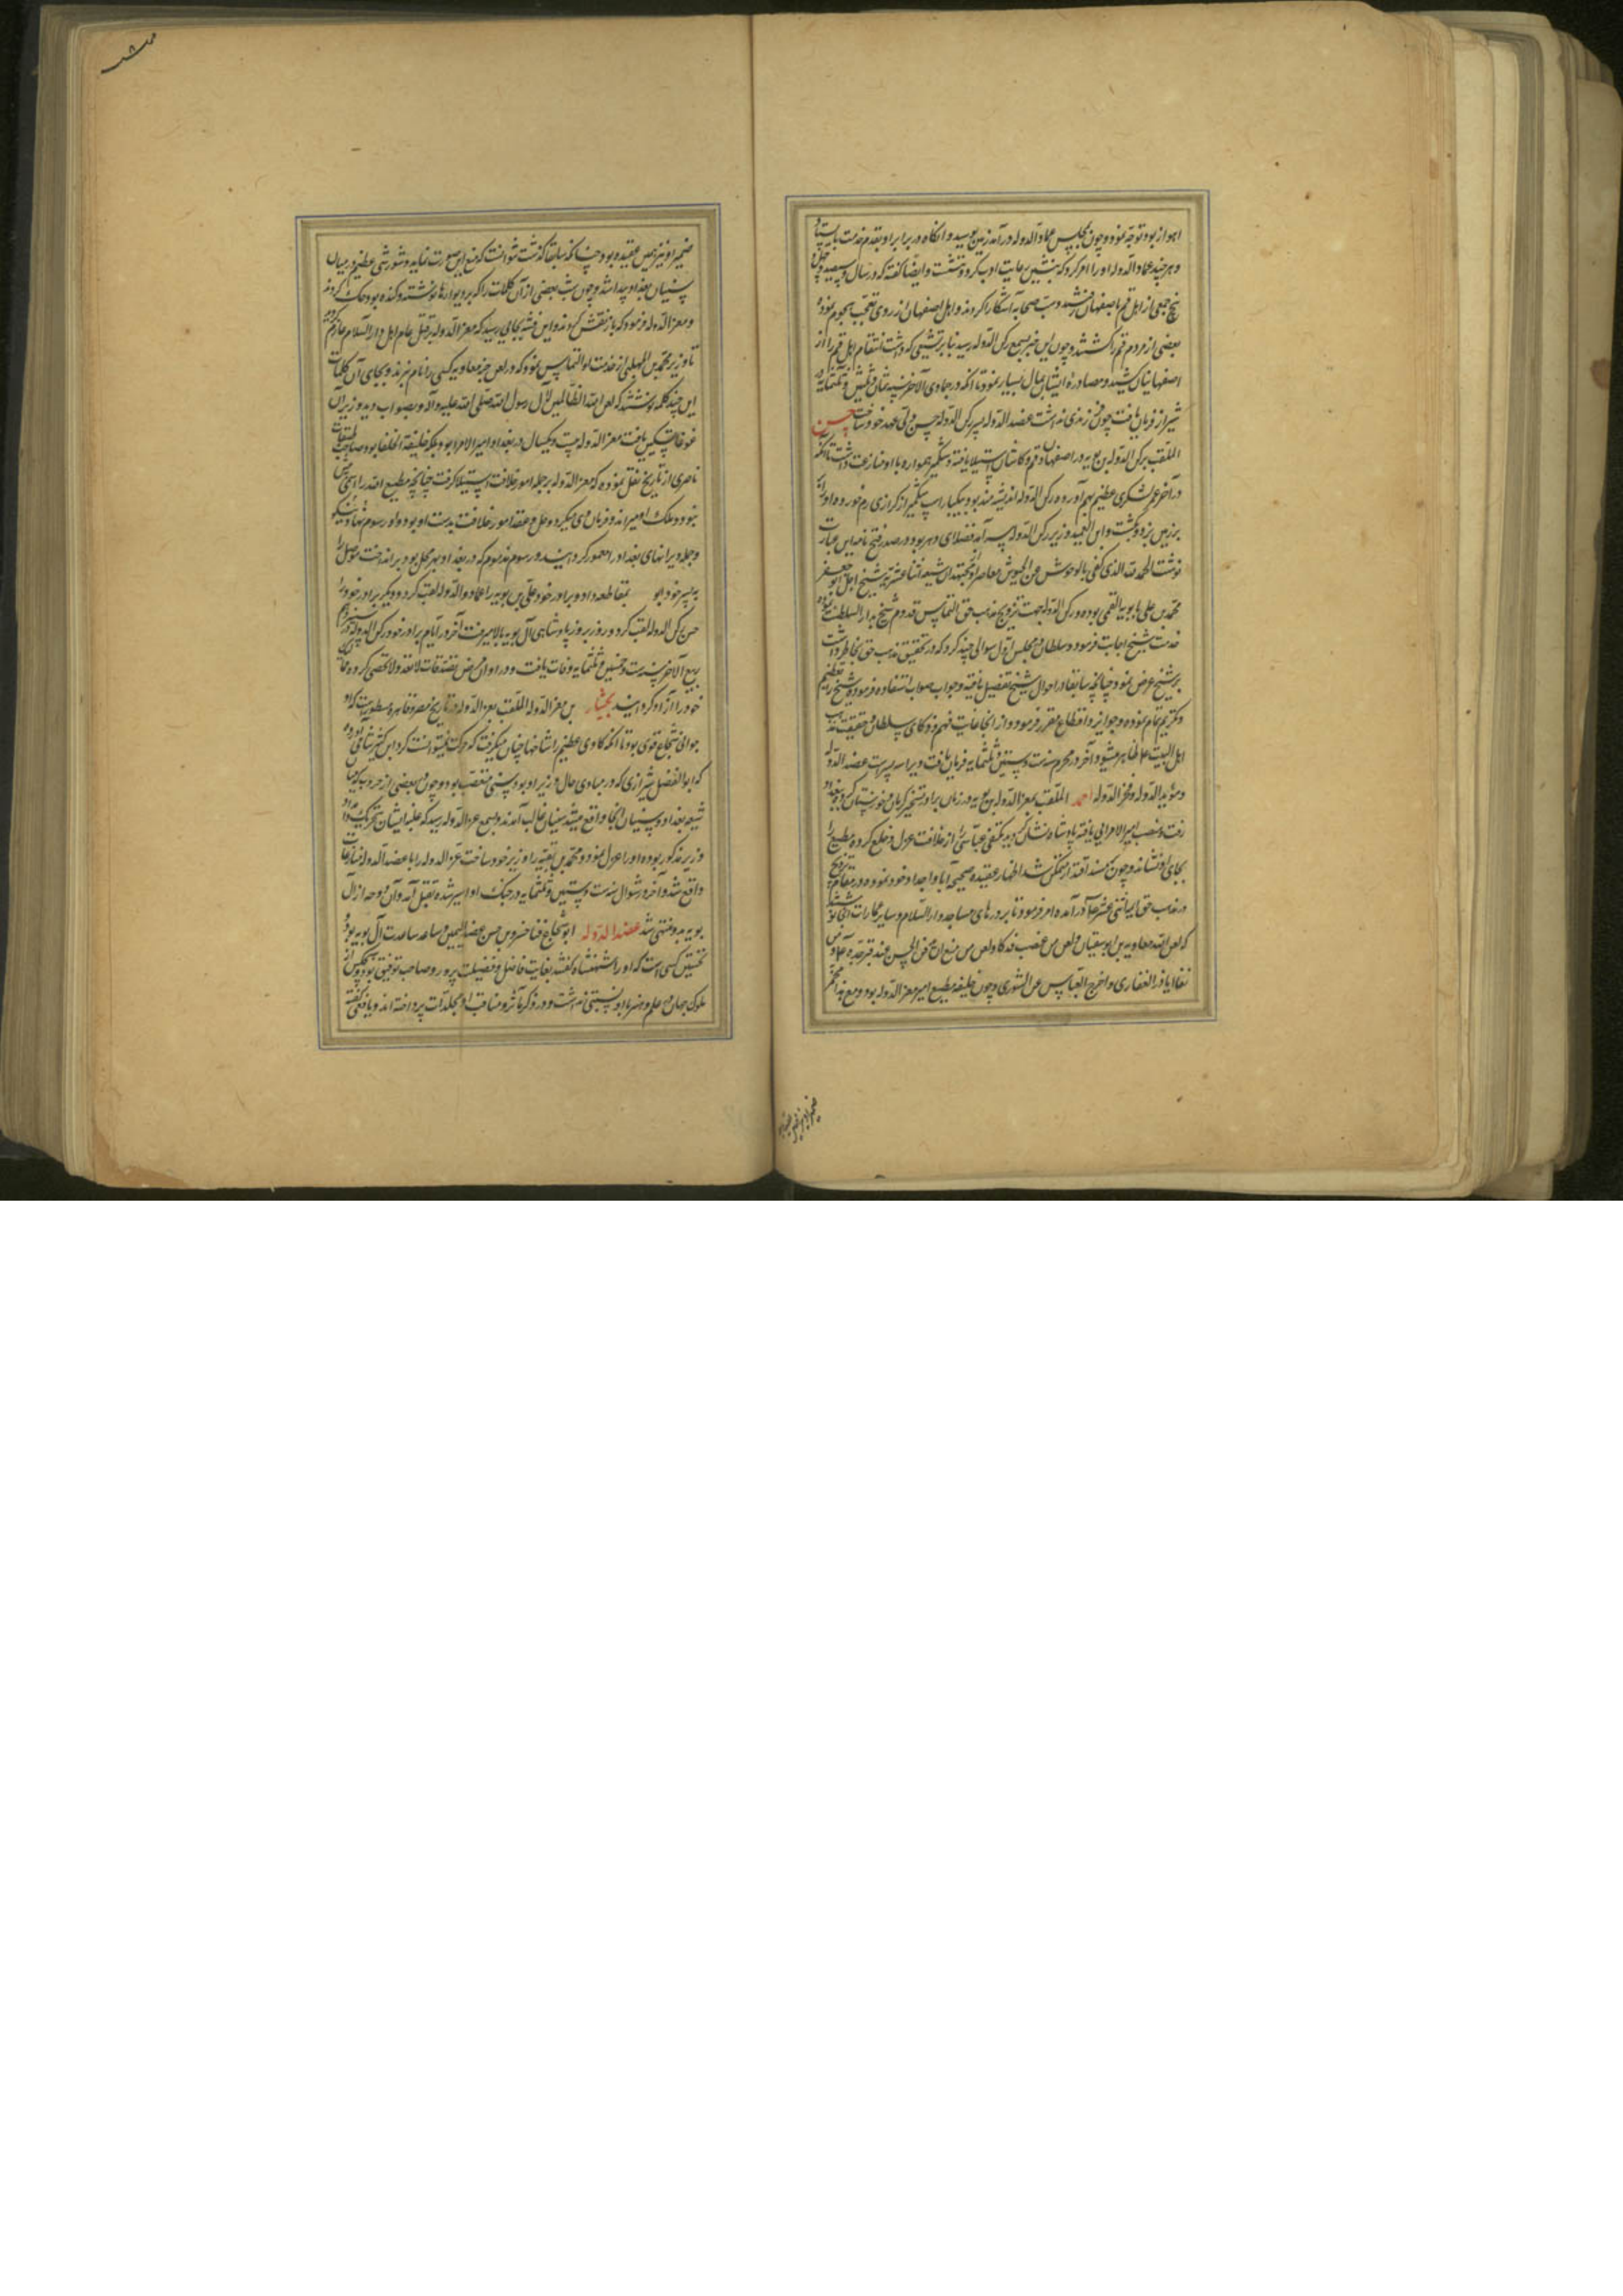 اهواز بود توجه نمود و چون بمجلس عماد الدوله در آمد زمین بوسید و آنکاه در برابر او بقدم خدمت بایستاد
و هر چند عماد الدوله او را امر کرد که بنشین رعایت ادب کرد و ننشست و ایضا کفته که در سال سیصد و چهل
پنج جمعی از اهل قم باصفهان رفتند و سب صحابه آشکارا کردند و اهل اصفهان از روی تعجب هجوم نموده
بعضی از مردم قم را کشتند و چون این خبر بسمع رکن الدوله رسید بنا بر تشیعی که داشت انتقام اهل قم را از
اصفهانیان کشید و مصادره ایشان بمال بسیار نمود تا آنکه در جمادی الآخر سنه ثمان و ثلثین و ثلثمایه در
شیراز فرمان یافت چون فرزندی نداشت عضد الدوله پسر رکن الدوله حسن ولی عهد خود ساخت حسن
الملقب برکن الدوله بن بویه در اصفهان و قم و کاشان استیلا یافته وشمکیر همواره با او منازعت داشت تا آنکه
در آخر عمر لشکری عظیم بهم آورده رکن الدوله اندیشه مند بود بیکبار اسپ وشمکیر از کرازی رم خورده او را
بر زمین زد و بکشت و ابن العمید وزیر رکن الدوله سر آمد فضلای دهر بود در صدر فتح نامه این عبارت
نوشت الحمد لله الذی کفی بالوحوش عن الجیوش معاصر او مجتهدان شیعه اثنا عشریه شیخ اجل ابو جعفر
محمد بن علی بابویه القمی بوده و رکن الدوله جهت ترویج مذهب حق التماس قدوم شیخ بدار السلطنه نموده
خدمت شیخ اجابت فرمود و سلطان در مجلس اول سوالی چند کرد که در تحقیق مذهب حق بخاطر داشت
بر شیخ عرض نمود چنانچه سابقا در احوال شیخ تفصیل یافته و جواب صواب استفاده فرموده شیخ را تعظیم
و تکریم تمام نموده و جوایز و اقطاع مقرر فرمود و از انجا غایت فهم و ذکای سلطان و حقیقت مذهب
اهل البیت علم ظاهر میشود آخر در محرم سنه ست و ستین و ثلثمایه فرمان یافت و او را سه پسرست عضد الدوله
و مؤید الدوله و فخر الدوله احمد الملقب بمعز الدوله بن بویه در زمان برادر تسخیر کرمان و خوزستان کرد و ببغداد
رفت و منصب امیر الامرایی یافته پادشاه نشان کردید مکتفی عباسی را از خلافت عزل و خلع کرده مطیع را
بجای او نشاند و چون مسند اقتدار متمکن شد اظهار عقیده صحیحه آبا و اجداد خود نموده در مقام ترویج
مذهب حق ایمه اثنی عشر در آمده امر فرمود تا بر درهای مساجد دار السلام و سایر عمارات آنجا نوشتند
که لعن الله معاویه بن ابو سفیان و لعن من غضب فدکا و لعن من منع ان دفن الحسن عند قبر جده و من
نفا اباذر الغفاری و اخرج العباس عن الشوری و چون خلیفه مطیع امیر معز الدوله بود و مع هذا محرّ
ضمیر او نیز همین عقیده بود
ضمیر او نیز همین عقیده بود چنانکه سابقا کذشت نتوانست که منع این صورت نماید و شورشی عظیم در میان
سنیان بغداد پیدا شد و چون شب بعضی از آن کلمات را که بر دیوارها نوشته و کنده بود حک کردند
و معز الدوله فرمود که باز نقش کردند و این فتنه بجایی رسید که معز الدوله بر قتل عام اهل دار السلام عازم کردید
تا وزیر محمد بن المهلبی از خدمت او التماس نمود که در لعن بجز معاویه کسی را نام نبرند و بجای آن کلمات
این چند کلمه نوشتند که لعن الله الظالمین لآل رسول الله صلی الله علیه و آله و بصواب دید وزیر آن
غوغا تسکین یافت معز الدوله بیست و یکسال در بغداد امیر الامرا بود بلکه خلیفة الخلفا بود صاحب طبقات
ناصری از تاریخ نقل نموده که معز الدوله بر جمله امور خلافت استیلا کرفت چنانچه مطیع الله را اسمی بیش
نبود و ملک او میراند و فرمان می میکرد و حل و عقد امور خلافت بدست او بود و او رسوم نیکو نهاد
و جمله ویرانهای بغداد را معمور کردانید و رسوم مذموم که در بغداد بهر محل بود بر انداخت موصل را
به پسر خود ابو بمقاطعه داد و برادر خود علی بن بویه را عماد الدوله لقب کرد و دیکر برادر خود را
حسن رکن الدوله لقب کرد و روز بروز پادشاهی آل بویه بالا میرفت آخر در ایام برادر خود رکن الدوله در سیزدهم
ربیع الآخر سنه ست و خمسین و ثلثمایه وفات یافت و در اوان مرض تصدقات لا تعد و لا تحصی کرده ممالیک
خود را آزاد کردانید بختیار بن معز الدوله الملقب بعز الدوله در تاریخ مصر و قاهره مسطورست که او
جوانی شجاع قوی بود تا آنکه کاوی عظیم را شاخها چنان میکرفت که حرکت نمیتوانست کرد ابن کثیر شامی آورده
که ابو الفضل شیرازی که در مبادی حال وزیر او بود سنی متعصب بود و چون بعضی از حروب که میان
شیعه بغداد و سنیان آنجا واقع میشد سنیان غالب آمدند و بسمع عز الدوله رسید که غلبه ایشان بتحریک و امداد
وزیر مذکور بوده او را عزل نمود و محمد بن بقیه را وزیر خود ساخت عز الدوله را با عضد الدوله منازعات
واقع شد و آخر در شوال سنه ست و ستین و ثلثمایه در جنک او اسیر شده بقتل آمد و آن دوحه از آل
بویه بدو منتهی شد عضد الدوله ابو شجاع فنا خسرو بن حسن عضد الیمین و ساعد مساعدت آل بویه بود
نخستین کسی است که او را شهنشاه کفتند بغایت فاضل و فضیلت پرور و صاحب توفیق بود و هیچکس از
ملوک جهان در علم و هنر با او نسبتی نداشت و در ذکر مآثر و مناقب او مجلدات پرداخته اند و یافعی کفته